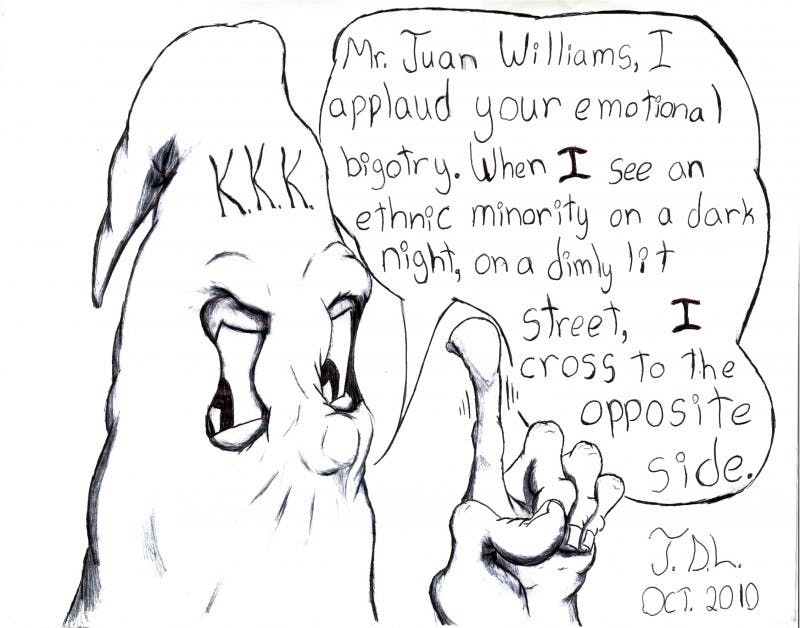 Mr. Juan Williams, I
applaud your emotional
bigotry. When I see an
ethnic minority on a dark
night, on a dimly lit
street, I
cross to the
opposite
side.
K.K.K.
J.D.L.
OCT. 2010